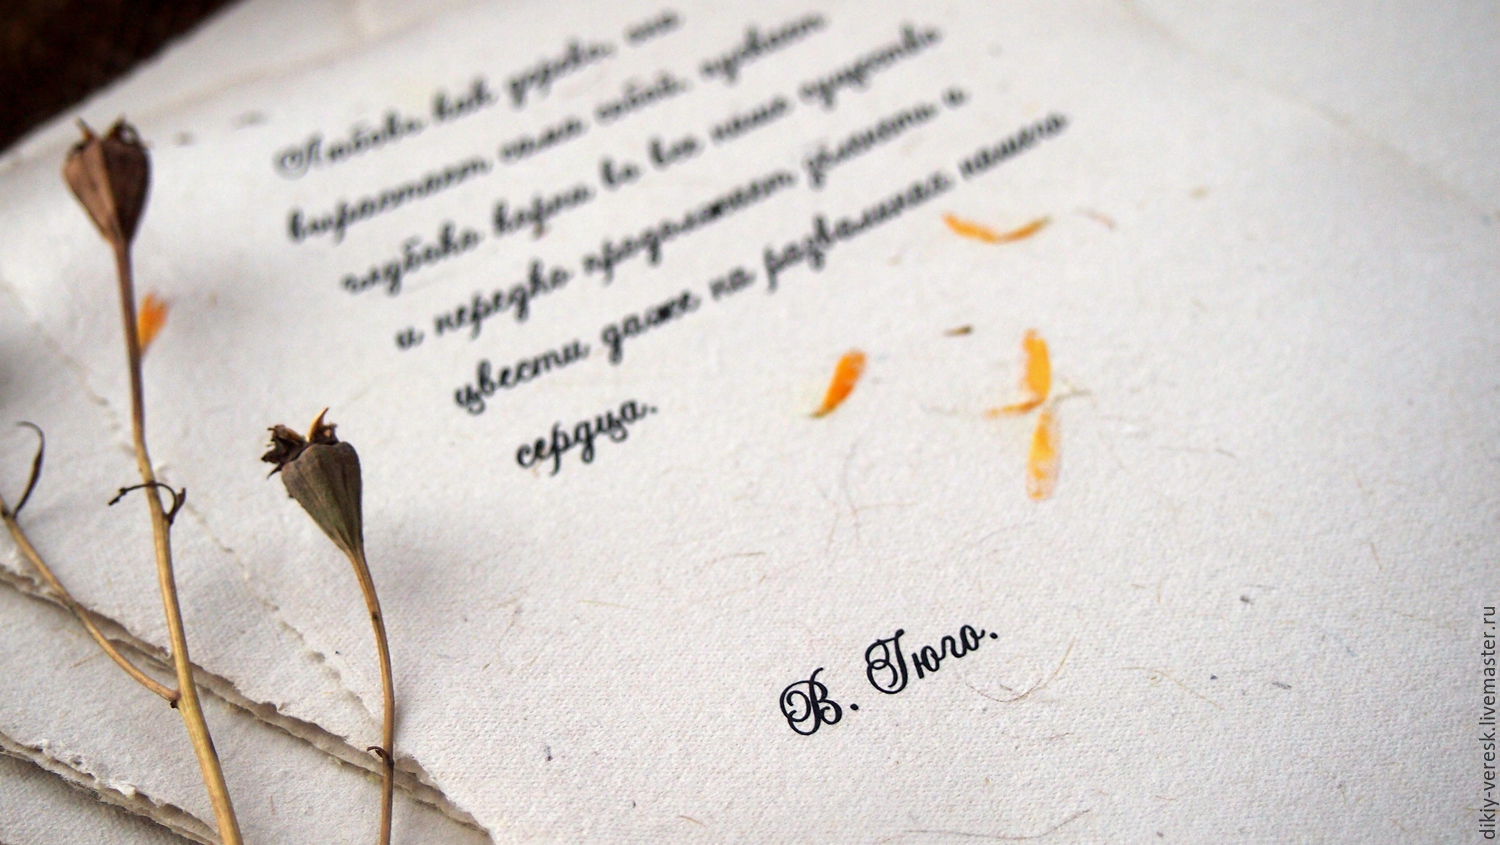 Любовь как дерево, она
вырастает сама собой, пускает
глубоко корни во все наше существо
и нередко продолжает зеленеть и
цвести даже на развалинах нашего
сердца.
В. Гюго.
dikiy-veresk.livemaster.ru